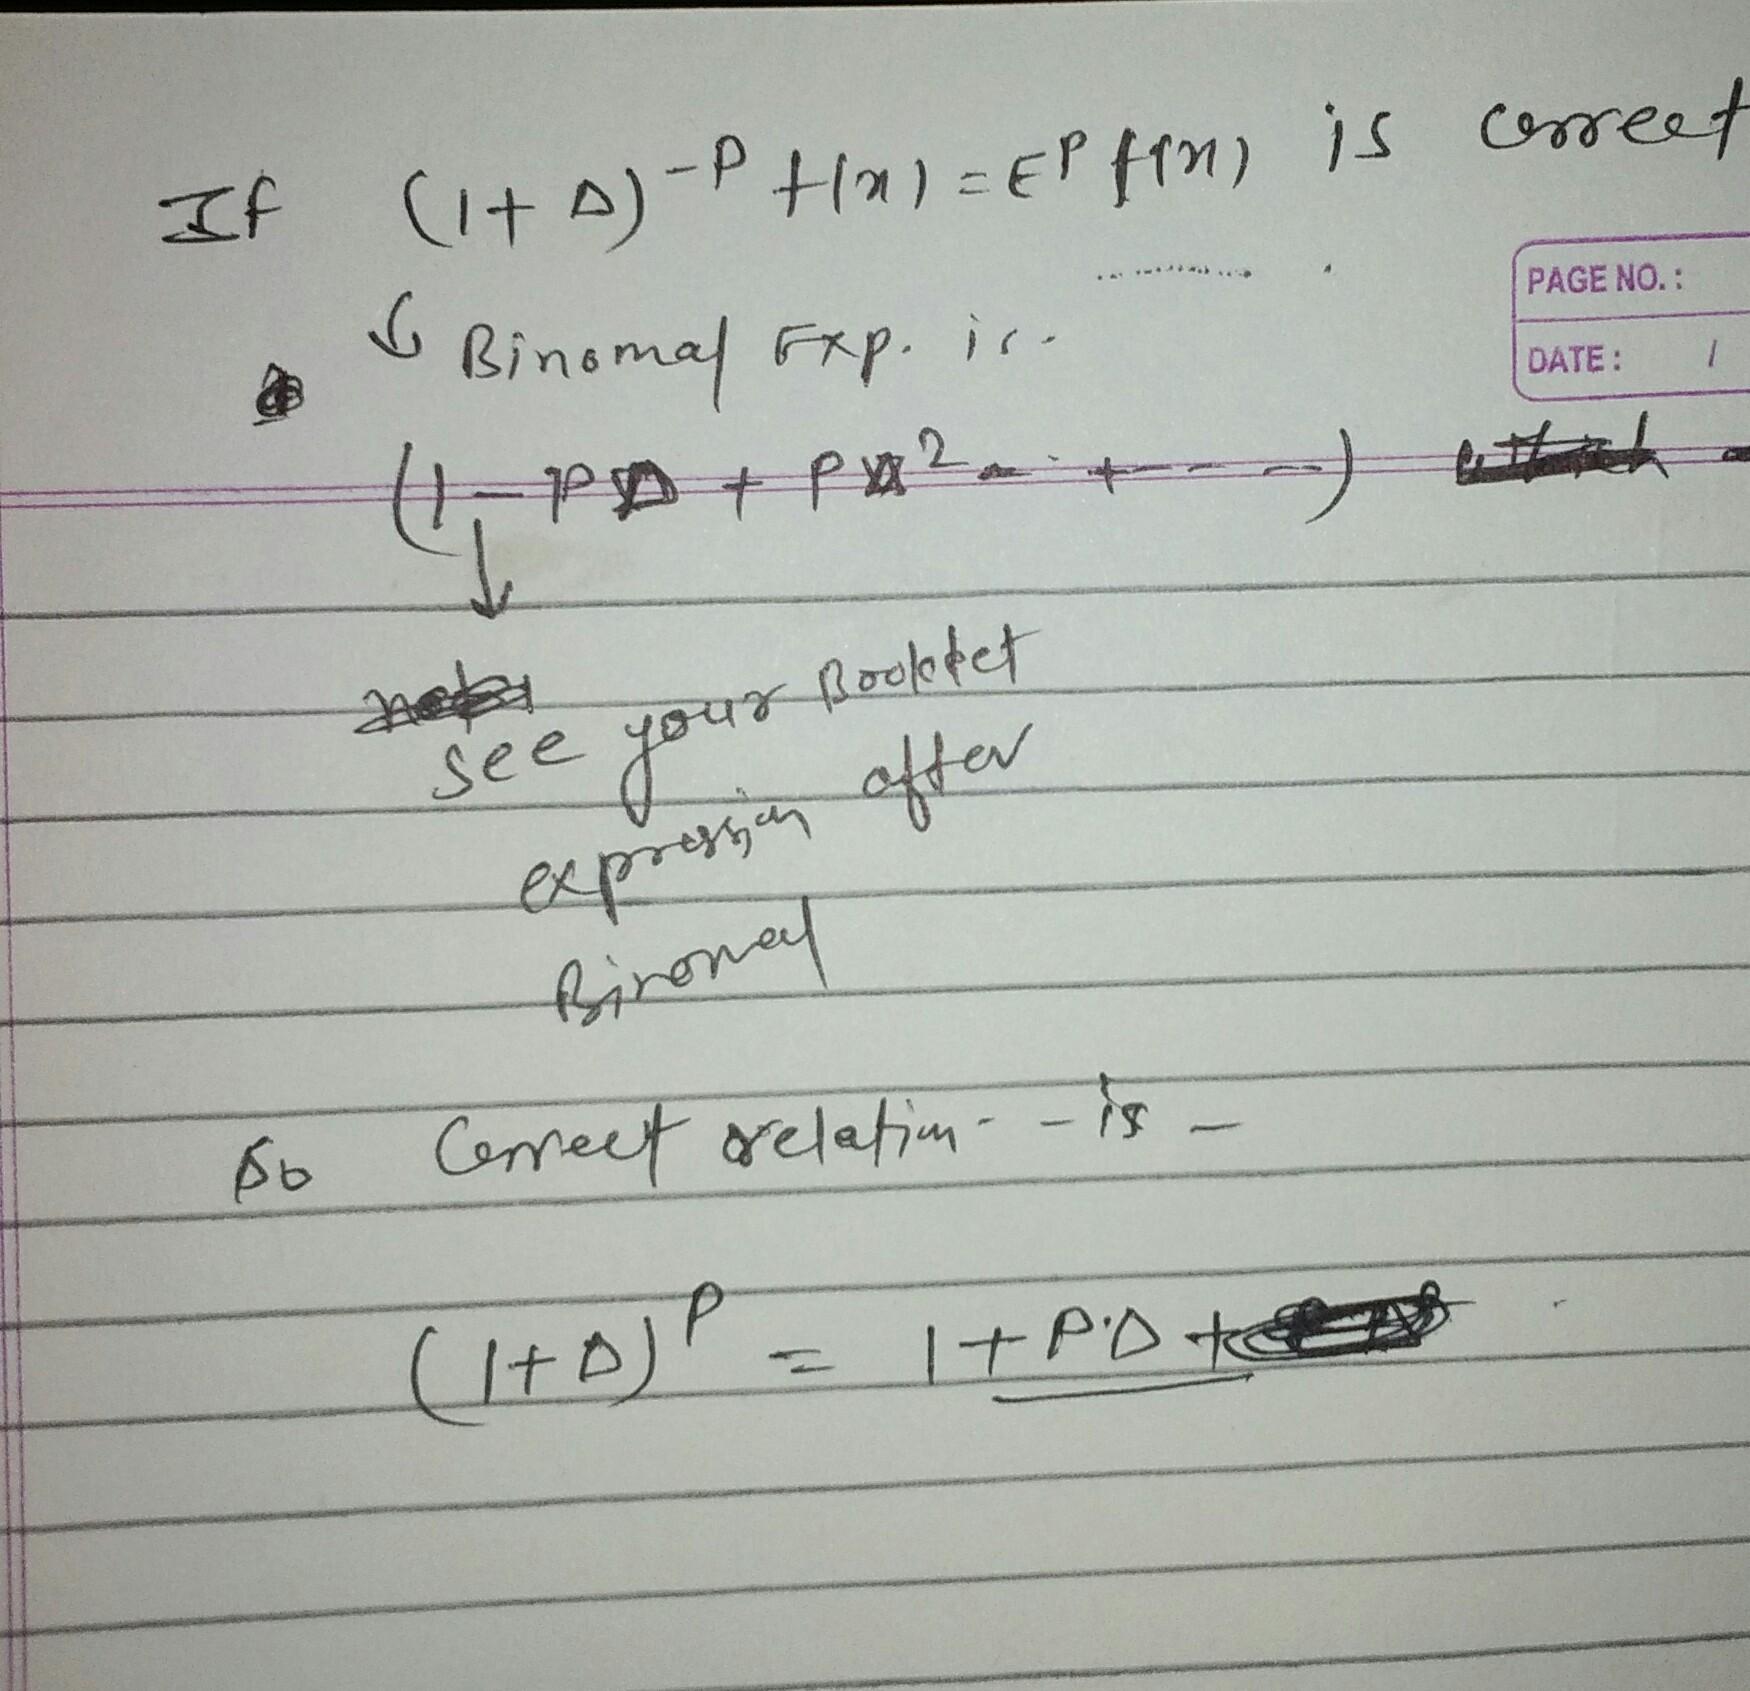 If (1+Δ)^-P f(x) = E^P f(x) is correct
PAGE NO.:
↓ Binomal Exp. is.
DATE: /
(1 - PΔ + PΔ² - + - - -)
↓
see your Booklet
expression after
Binomal
So Correct relation - - is -
(1+Δ)^P = 1 + P·Δ +